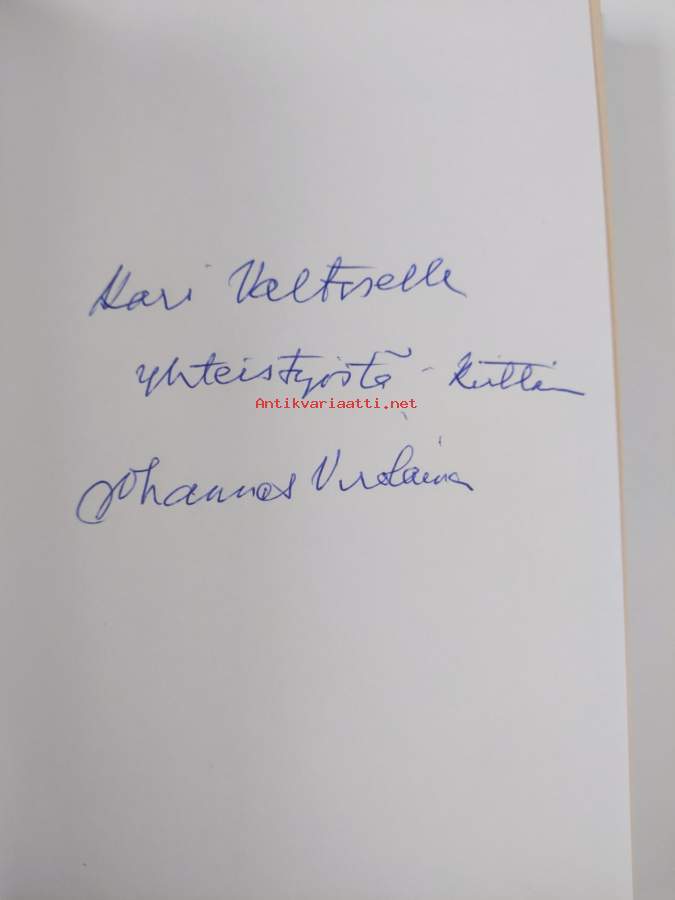 Kari Valtoselle
yhteistyöstä kiittäen
Antikvariaatti.net
Johannes Virolainen